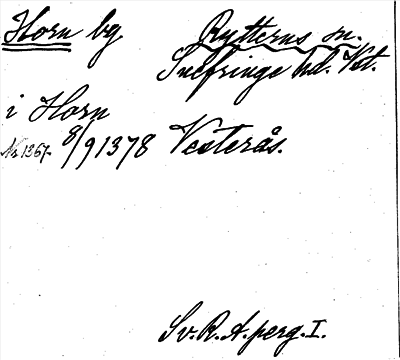 Horn bg Rytterns sn.
Snefringe hd. Vst.
i Horn
Nr 1367. 8/9 1378 Vesterås.
Sv. R. A. perg. I.